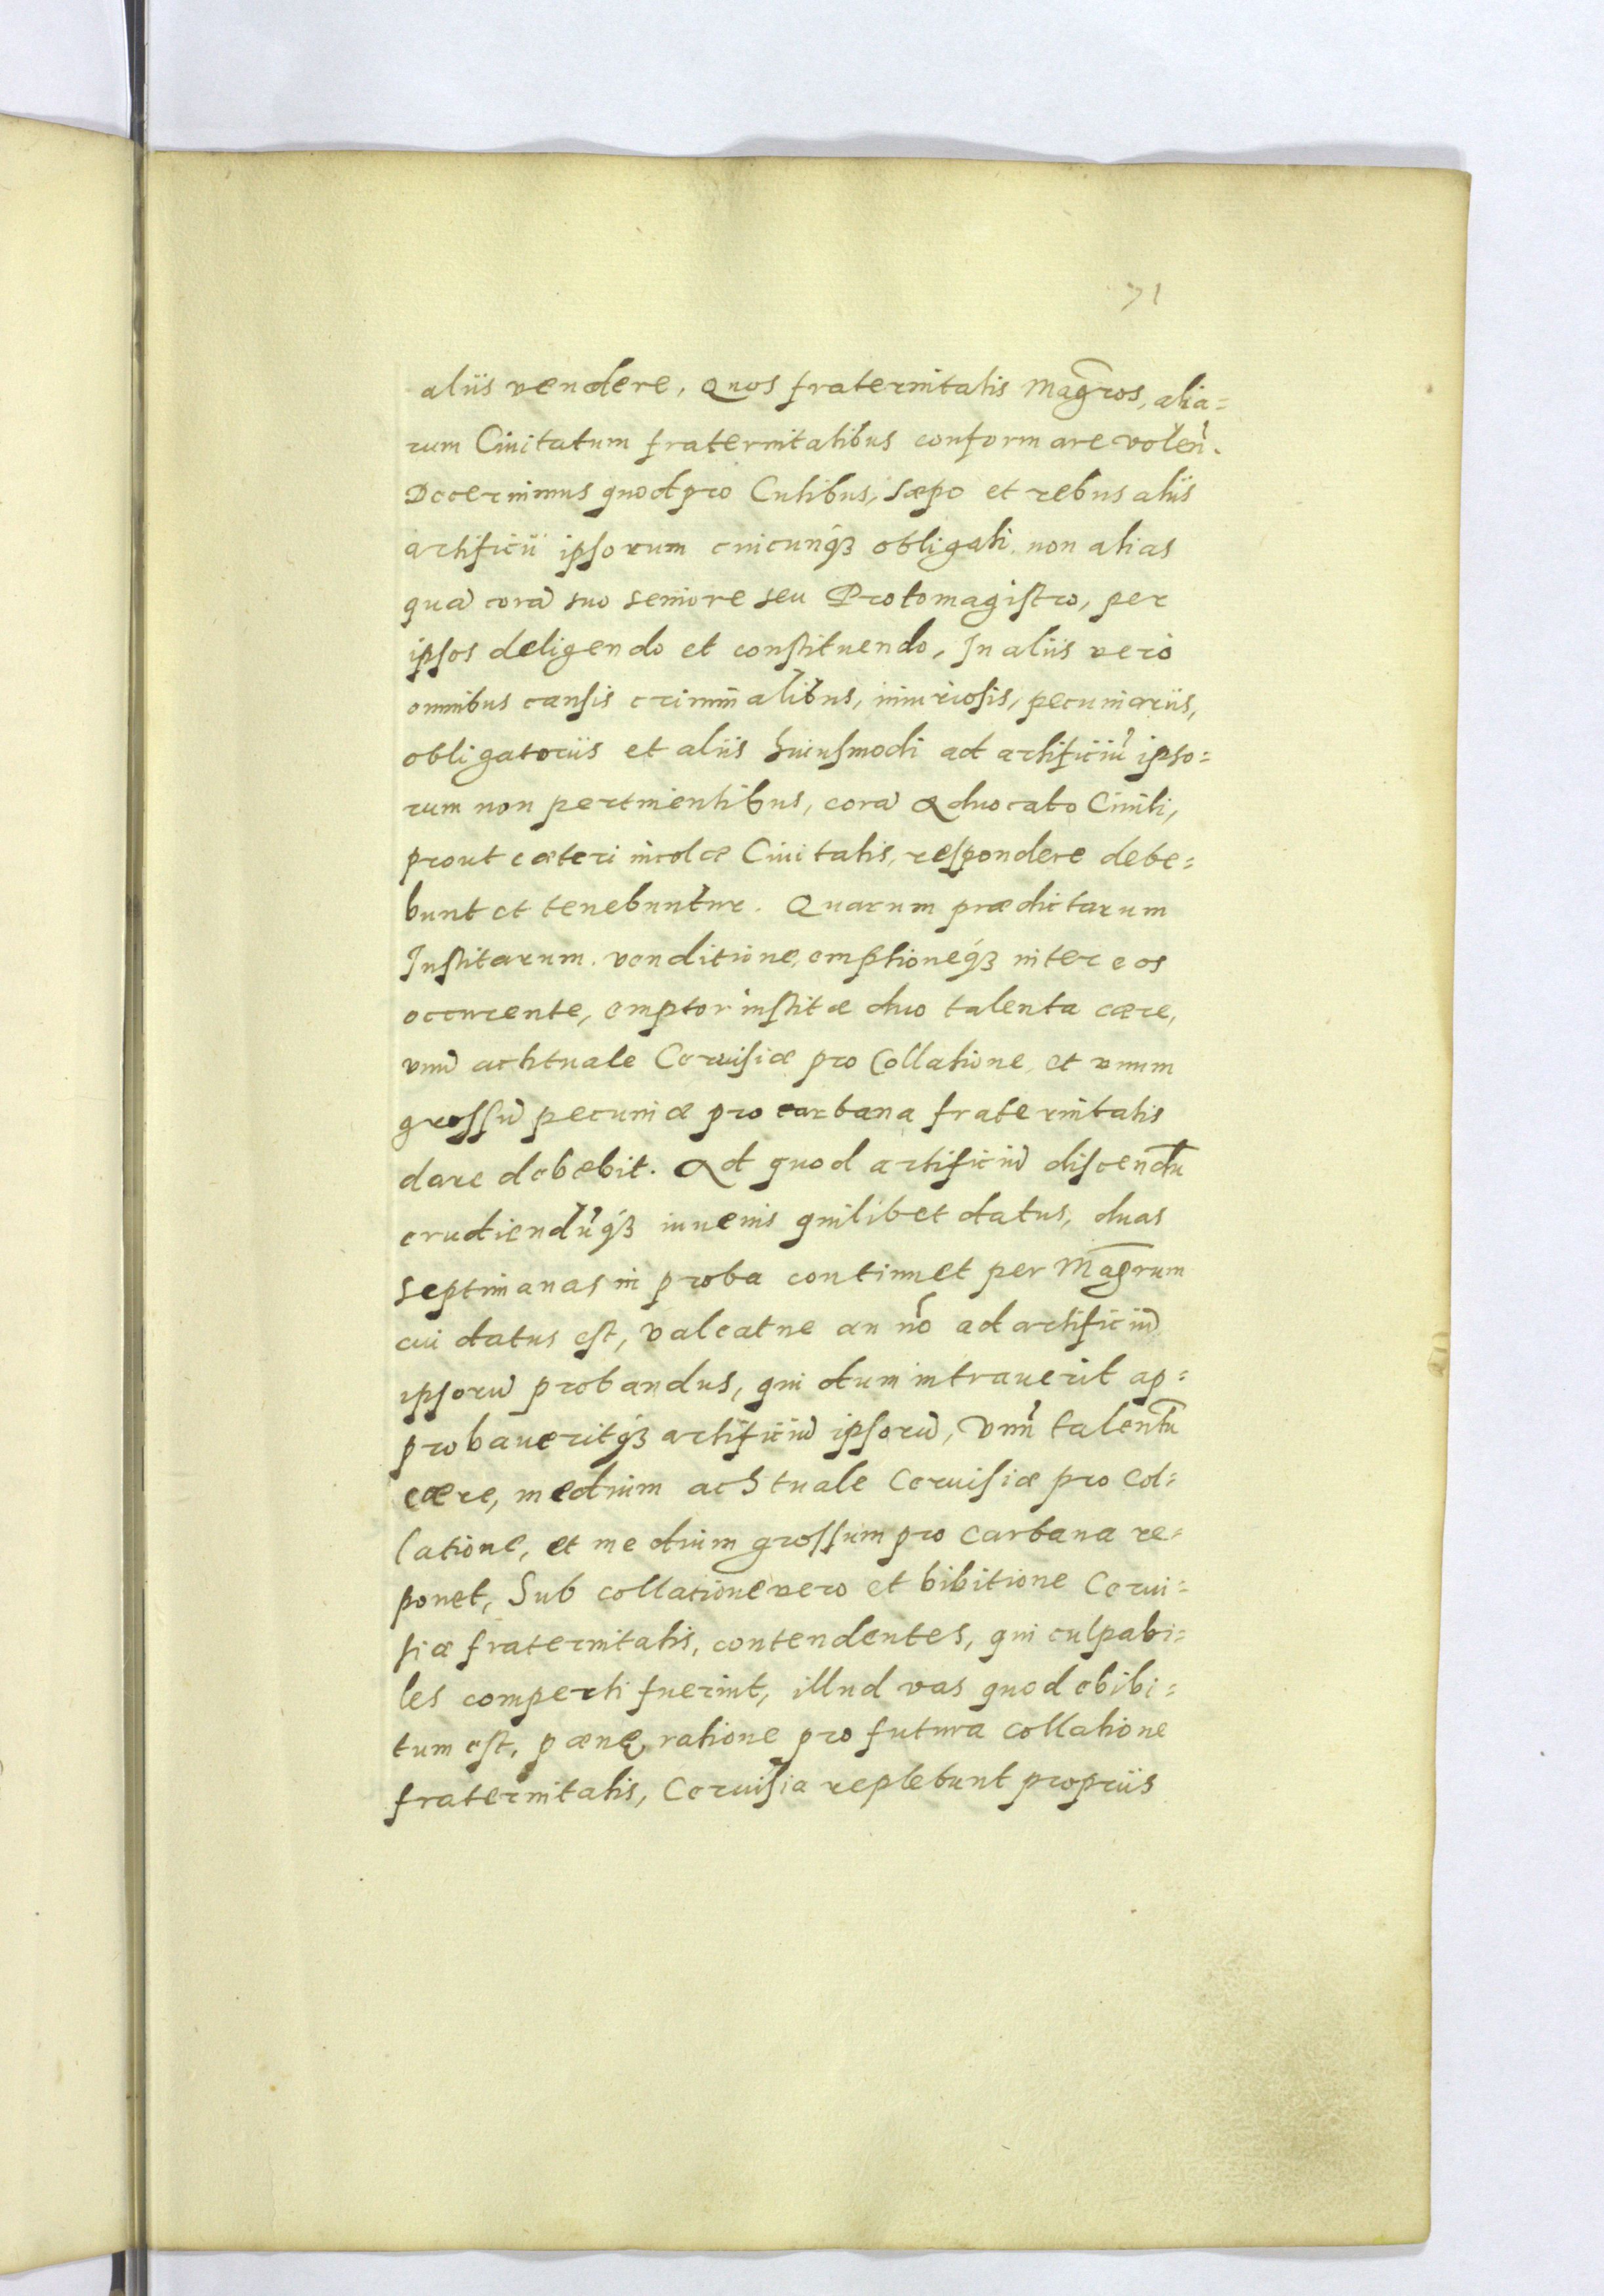 71
aliis vendere. Quos fraternitatis Magr̃os, alia=
rum Ciuitatum fraternitatibus conformare voleñ.
Decernimus quod pro Cutibus, sæpo et rebus aliis
artificii ipsorum cuicunqȝ obligati non alias
quā corā suo seniore seu Protomagistro, per
ipsos deligendo et constituendo, In aliis vero
omnibus causis criminalibus, iniuriosis, pecuniariis,
obligatoriis et aliis huiusmodi ad artificiū ipso=
rum non pertinentibus, corā Aduocato Ciuili,
prout cæteri incolæ Ciuitatis, respondere debe=
bunt et tenebuntur. Quarum prædictarum
Institarum venditione, emptioneqȝ inter eos
occurente, emptor institæ duo talenta cære,
vnū achtuale Ceruisiæ pro Collatione et vnum
grossū pecuniæ pro carbana fraternitatis
dare debebit. Ad quod artificiū discendū
erudiendūqȝ iuuenis quilibet datus, duas
septimanas in proba continuet per Magr̃um
cui datus est, valeatne an nō ad artificiū
ipsorū probandus, qui dum intrauerit ap=
probaueritqȝ artificiū ipsorū, vnū talentū
cære, medium achtuale Ceruisiæ pro Col=
latione, et medium grossum pro carbana re=
ponet, Sub collatione vero et bibitione Cerui=
siæ fraternitatis, contendentes, qui culpabi=
les comperti fuerint, illud vas quod ebibi=
tum est, pænę ratione pro futura collatione
fraternitatis, Ceruisia replebunt propriis